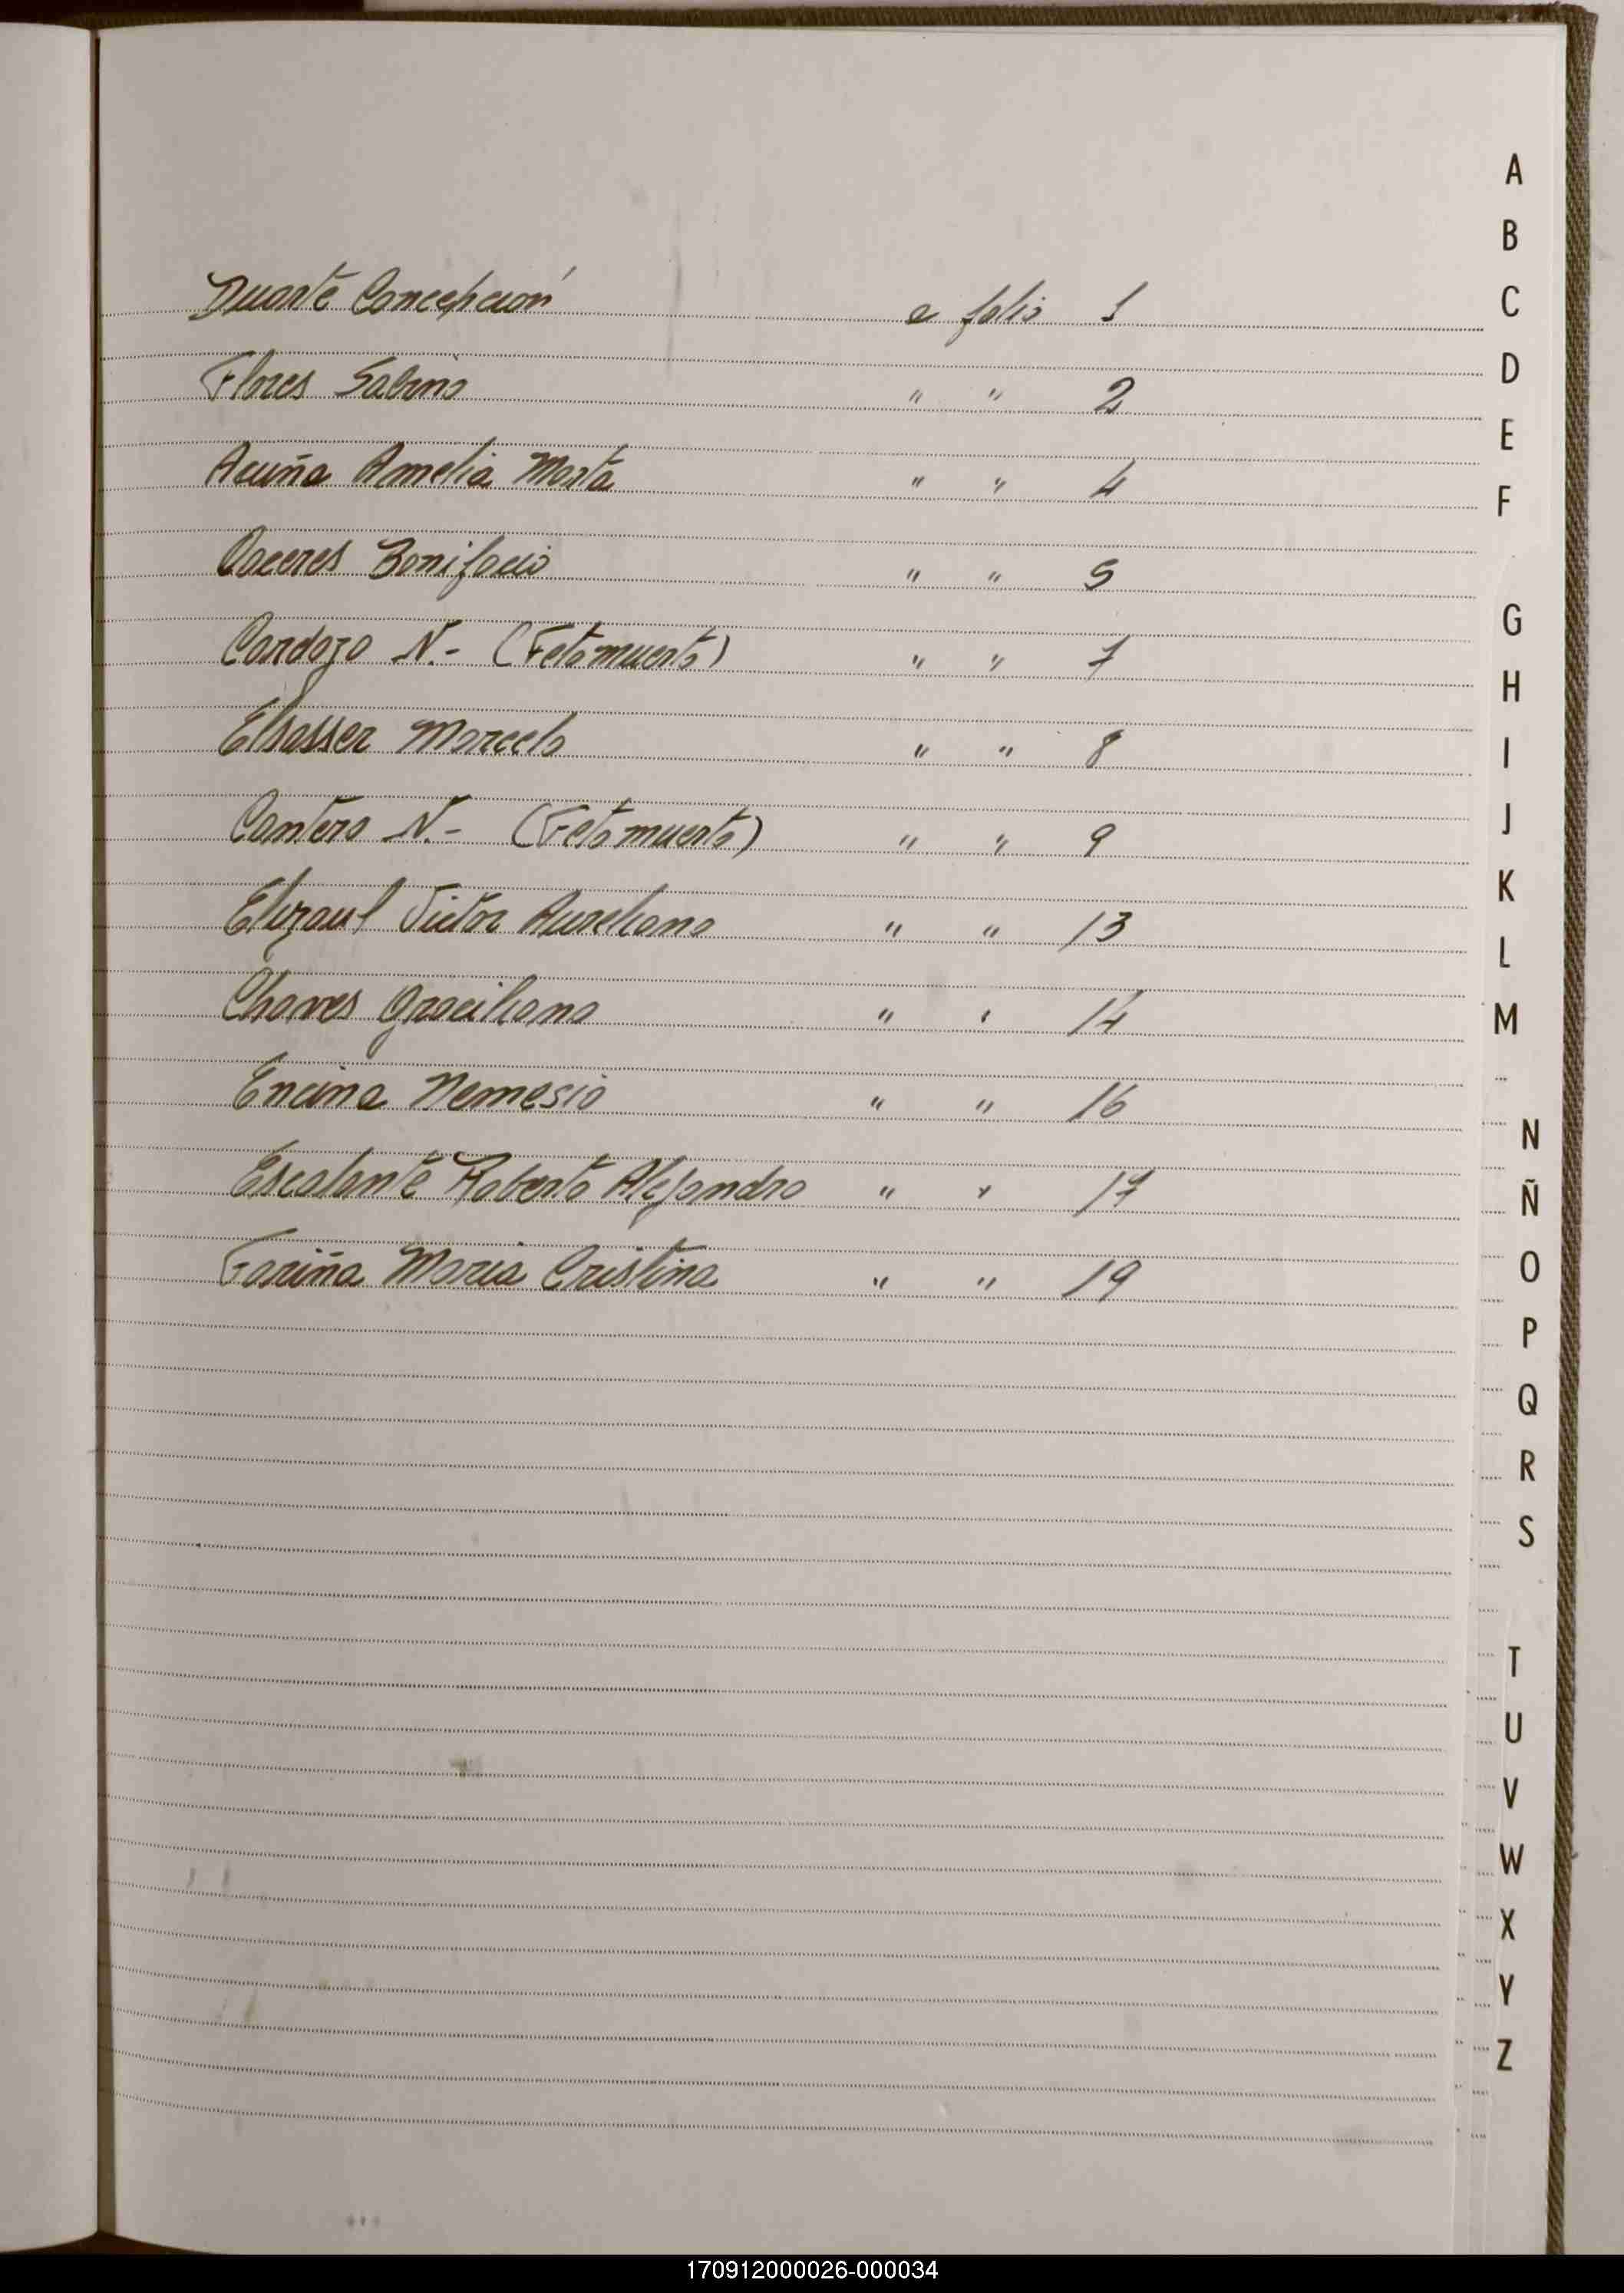 Duarte Concepción a folio 1
Flores Sabino " " 2
Acuña Amelia Marta " " 4
Caceres Bonifacio " " 5
Cardozo N.- (Feto muerto) " " 7
Elsasser Marcelo " " 8
Cantero N.- (Feto muerto) " " 9
Victor Aureliano " " 13
Chaves Graciliano " " 14
Encina Nemesio " " 16
Escalante Roberto Alejandro " " 17
Fariña Maria Cristina " " 19
A
B
C
D
E
F
G
H
I
J
K
L
M
N
Ñ
O
P
Q
R
S
T
U
V
W
X
Y
Z
170912000026-000034